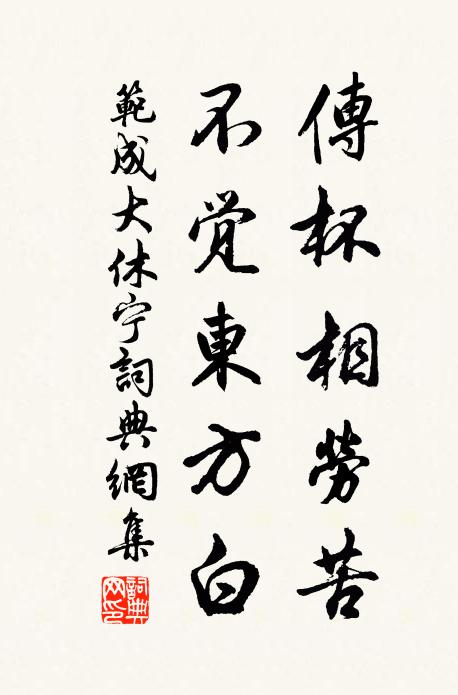 傳杯相勞苦
不覺東方白
範成大休宁詞典網集
詞典网印